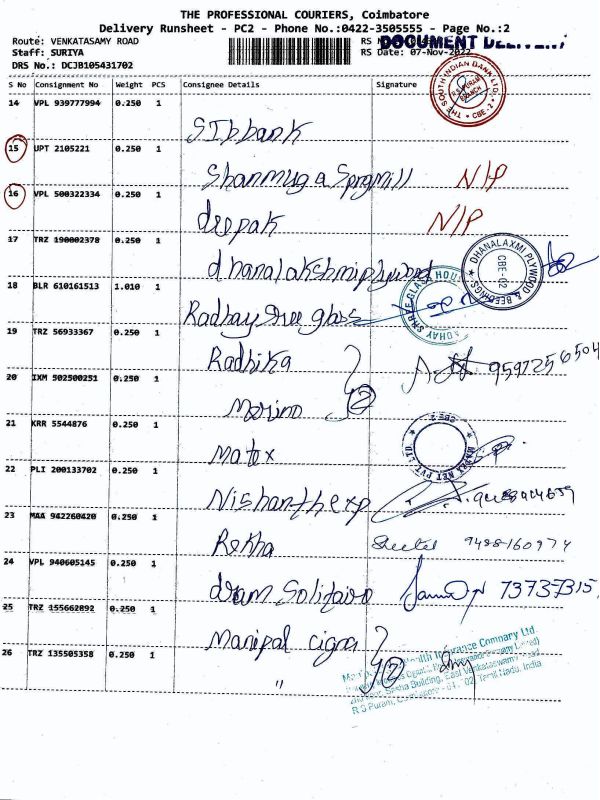 THE PROFESSIONAL COURIERS, Coimbatore
Delivery Runsheet - PC2 - Phone No.:0422-3505555 - Page No.:2
Route: VENKATASAMY ROAD
Staff: SURIYA RS Date: 07-Nov-2022
DRS No.: DCJB105431702
DOCUMENT DELIVERY
S No Consignment No Weight PCS Consignee Details Signature
THE SOUTH INDIAN BANK LTD. BRANCH CBE-2
14 VPL 939777994 0.250 1 SIbbank
15 UPT 2105221 0.250 1 Shanmuga Spgmill N/P
16 VPL 500322334 0.250 1 deepak N/P
17 TRZ 190002378 0.250 1 dhanalakshmiplywood
DHANALAXMI PLYWOOD & BEEDINGS CBE-02
18 BLR 610161513 1.010 1 Radhay shree glass
19 TRZ 56933367 0.250 1 Radhika 9597256504
20 IXM 502500251 0.250 1 Merino 2
21 KRR 5544876 0.250 1 Matex
22 PLI 200133702 0.250 1 Nishanth exp
23 MAA 942260420 0.250 1 Rekha 9488160974
24 VPL 940605145 0.250 1 dream Solitairo 737373157
25 TRZ 155662892 0.250 1 Manipal cigna
26 TRZ 135505358 0.250 1 " 2
Health Insurance Company Ltd
Sesha Building, East Venkataswamy Road
R S Puram, Coimbatore - 641 02 Tamil Nadu, India